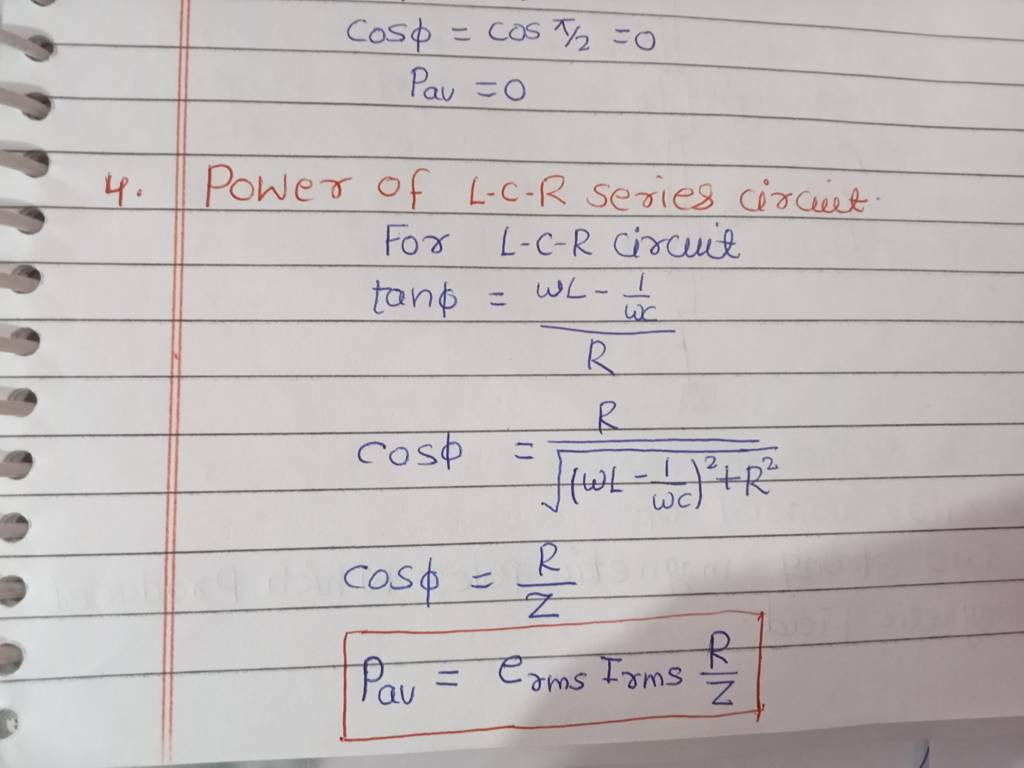 cosϕ = cos π/2 = 0
Pav = 0
4. Power of L-C-R series circuit.
For L-C-R circuit
tanϕ = (ωL - 1/ωC) / R
cosϕ = R / √((ωL - 1/ωC)² + R²)
cosϕ = R/Z
Pav = erms Irms R/Z